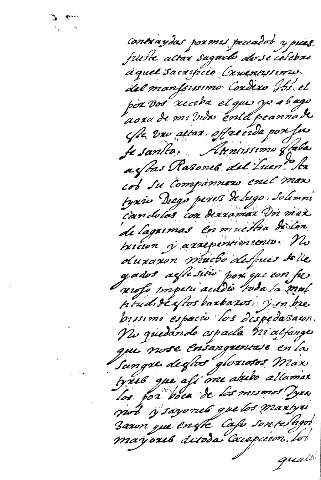 contraydas por mis pecados y pues
fuiste altar sagrado do se celebro
aquel sacrificio cruentissimo
del mansissimo Cordero el
por vos reciba el que yo ahago
aora de mi vida en la peanna de
este altar, ofrecida por
te santa. Atentissimo estaba
a estas Razones del
cos su Compannero en el mar
tyrio Diego peres de lugo, solemni
candolas con derramar Un mar
de lagrimas en muestra de con
tricion y arrepentimiento. No
duraron mucho despues de lle
gados a este sitio por que con fu
rioso impetu acudio toda la mul
titud de estos barbaros y en bre
vissimo espacio los despedasaron.
No quedando espada ni alfange
que no se ensangrentase en la
Sangre de estos gloriosos Mar
tyres que asi me atrebo a llamar
los por boca de los mismos Tyra
nos y sayones que los martyri
zaron que en este Caso son testigos
mayores de toda excepcion, los
quales